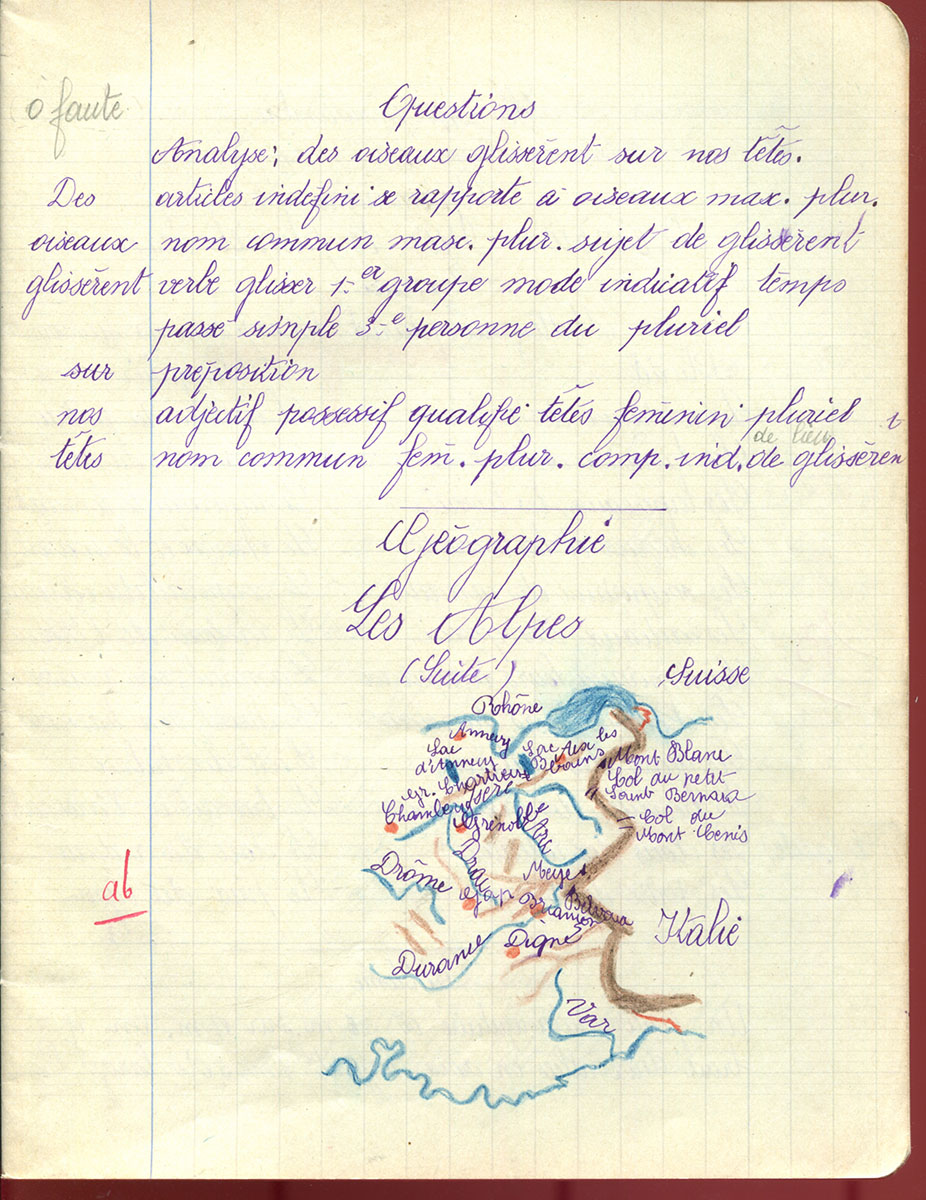 0 faute
Questions
Analyse: des oiseaux glissèrent sur nos têtes.
Des articles indefini se rapporte à oiseaux max. plur.
oiseaux nom commun masc. plur. sujet de glissèrent
glissèrent verbe glisser 1-er groupe mode indicatif temps
passé simple 3-e personne du pluriel
sur préposition
nos adjectif possessif qualifie têtes féminin pluriel
de lieu t
têtes nom commun fém. plur. comp. ind. de glissèren
Géographie
Les Alpes
(Suite)
Suisse
Rhône
Annecy
Lac
d'Annecy
Lac Aix les
Bains
Mont Blanc
Col au petit
Saint Bernard
Gr. Chartreuse
Isère
Chambery
Col du
Mont Cenis
Grenoble
Arc
Drac
Drôme
Meije
Gap
Briançon
ab
Italie
Digne
Durance
Var